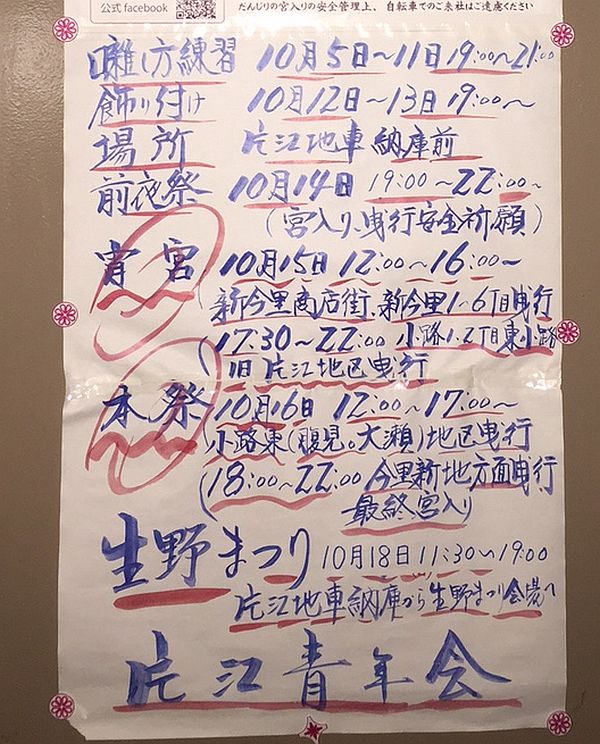 公式 facebook
だんじりの宮入りの安全管理上、自転車でのご来社はご遠慮ください
囃し方練習 10月5日〜11日 19:00〜21:00
飾り付け 10月12日〜13日 19:00〜
場所 片江地車納庫前
前夜祭 10月14日 19:00〜22:00〜
(宮入り、曳行安全祈願)
宵宮 10月15日 12:00〜16:00〜
新今里商店街、新今里1〜6丁目曳行
17:30〜22:00 小路1.2丁目東小路
旧片江地区曳行
本祭 10月16日 12:00〜17:00〜
小路東(腹見。大瀬)地区曳行
18:00〜22:00 今里新地方面曳行
最終宮入り
生野まつり 10月18日 11:30〜19:00
片江地車納庫から生野まつり会場へ
片江青年会